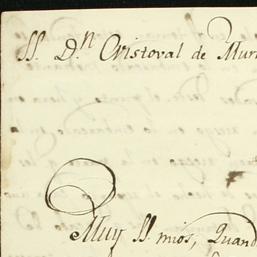 S.r D.n Cristoval de Mur
Muy S.r mios, Quand